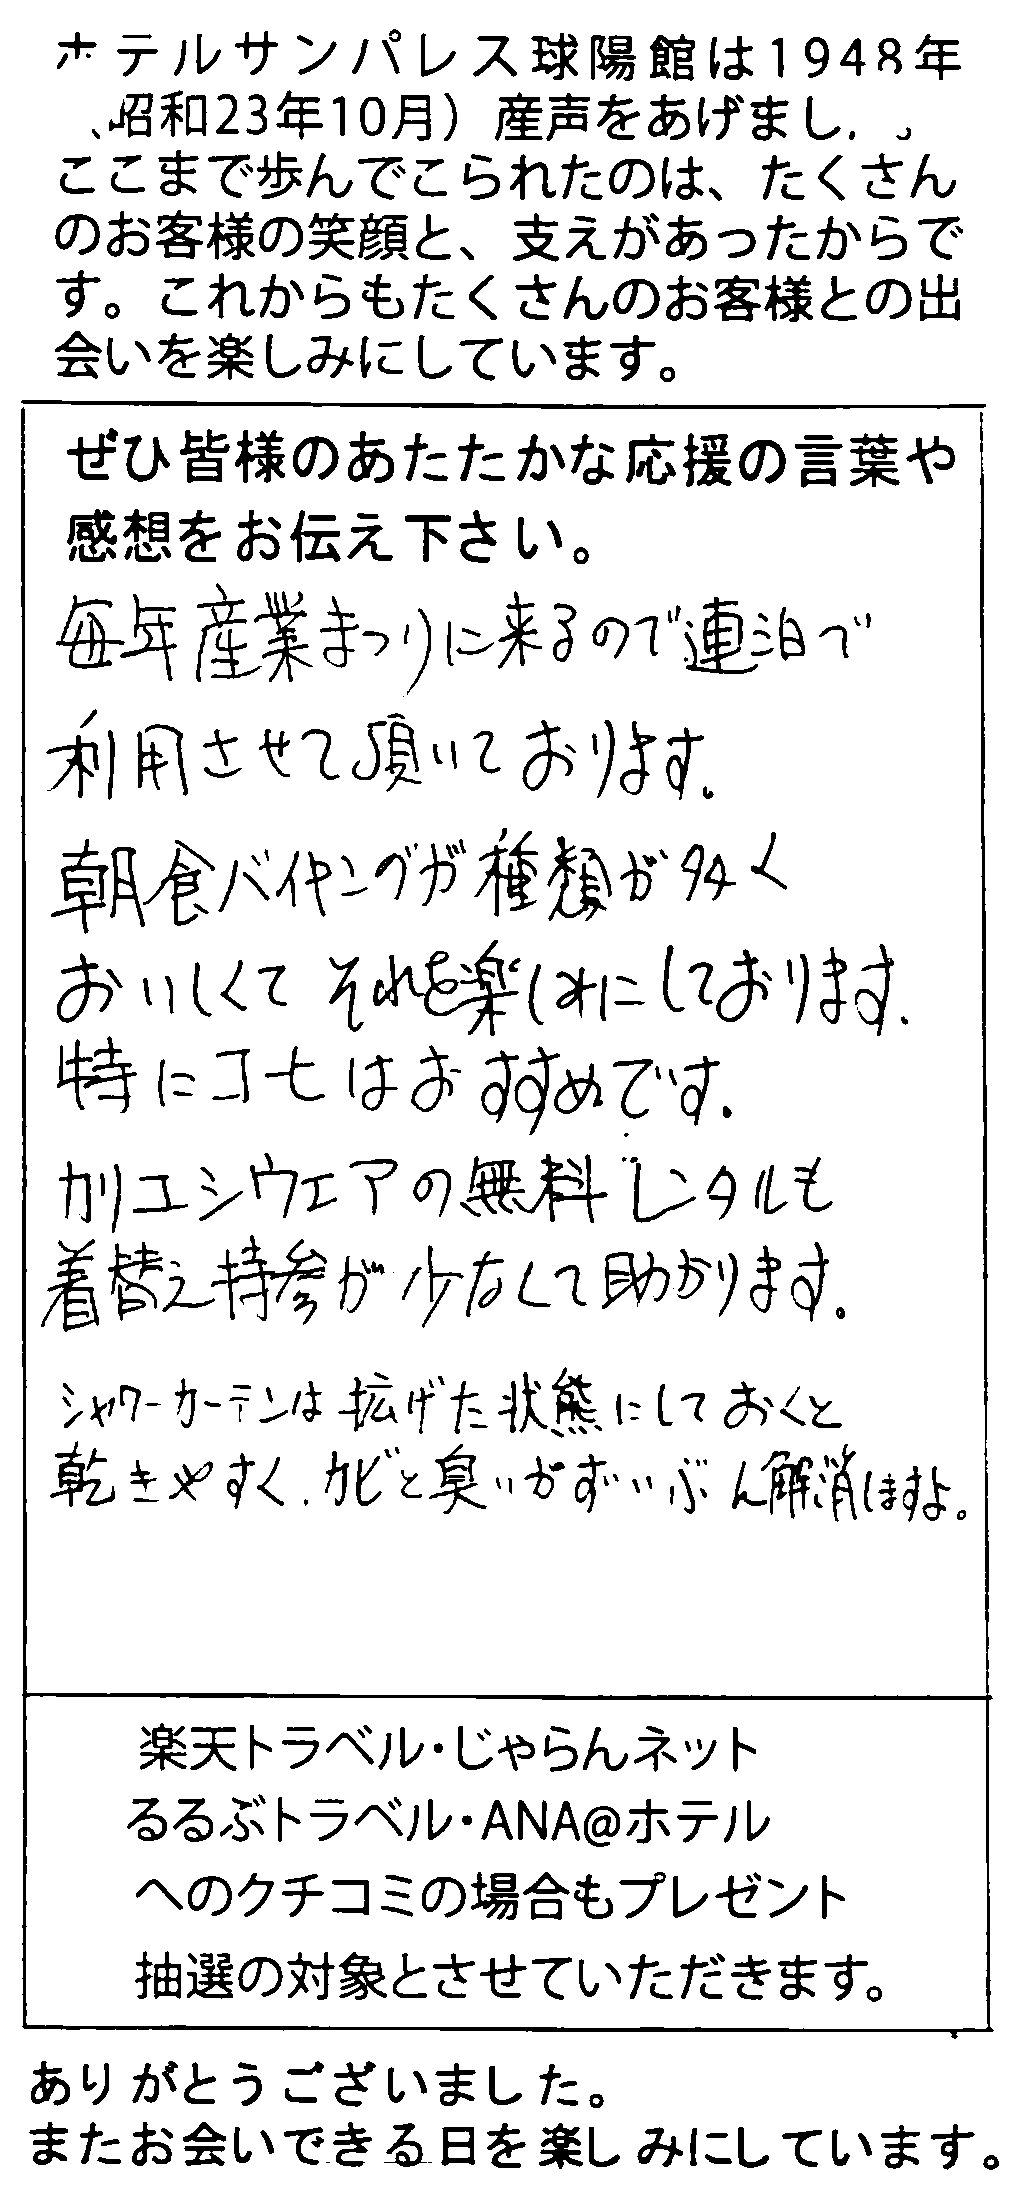 ホテルサンパレス球陽館は1948年
昭和23年10月）産声をあげまし
ここまで歩んでこられたのは、たくさん
のお客様の笑顔と、支えがあったからで
す。これからもたくさんのお客様との出
会いを楽しみにしています。
ぜひ皆様のあたたかな応援の言葉や
感想をお伝え下さい。
毎年産業まつりに来るので連泊で
利用させて頂いております。
朝食バイキングが種類が多く
おいしくてそれを楽しみにしております。
特にコセはおすすめです。
カリユシウェアの無料レンタルも
着替え持参が少なくて助かります。
シャワーカーテンは拡げた状態にしておくと
乾きやすく、カビと臭いがずいぶん解消しますよ。
楽天トラベル・じゃらんネット
るるぶトラベル・ANA@ホテル
へのクチコミの場合もプレゼント
抽選の対象とさせていただきます。
ありがとうございました。
またお会いできる日を楽しみにしています。